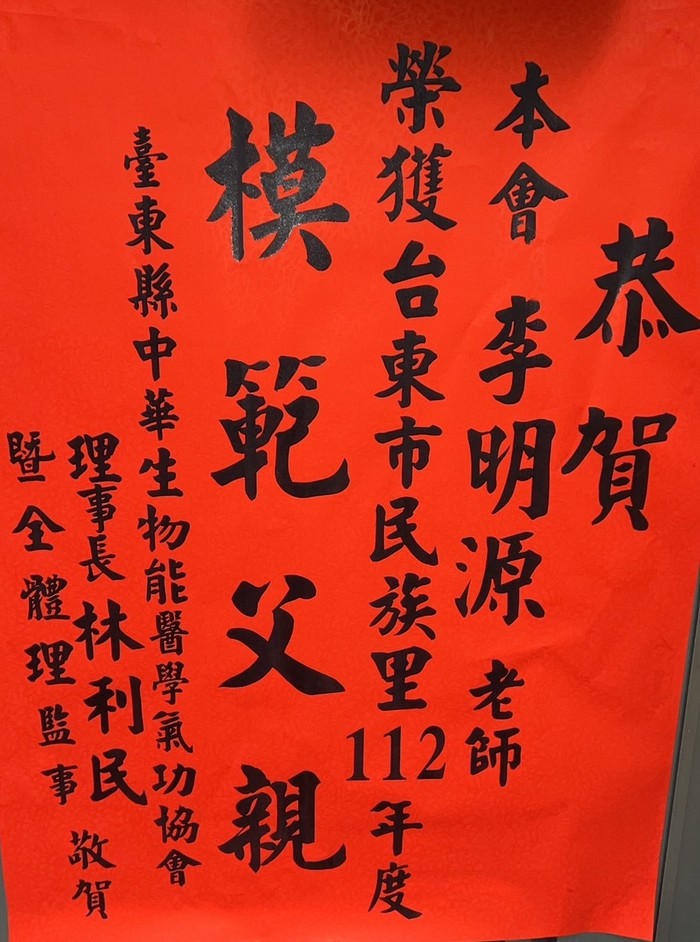 恭賀
本會 李明源 老師
榮獲台東市民族里112年度
模範父親
臺東縣中華生物能醫學氣功協會
理事長 林利民 敬賀
暨全體理監事